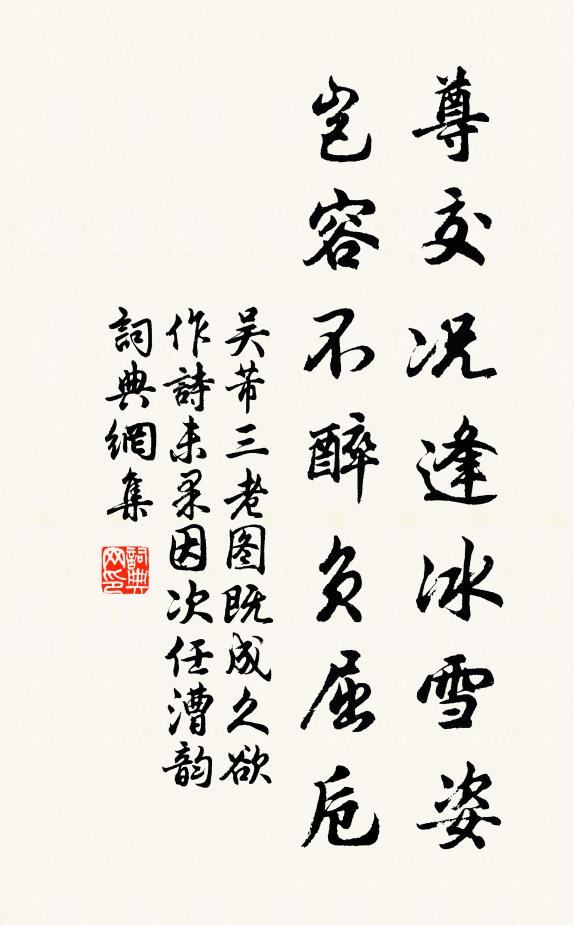 尊交况逢冰雪姿
岂容不醉负屈卮
吴芾三老图既成久欲
作詩未果因次任漕韵
詞典網集
詞典网印